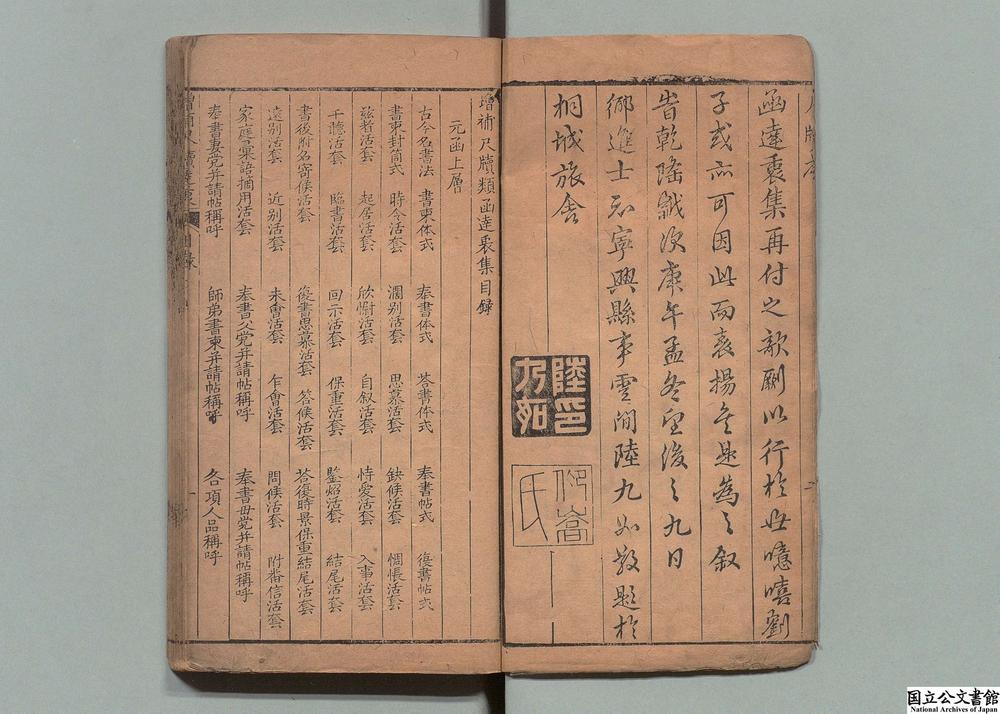 函達裒集再付之剞劂以行於世噫嘻劉
子或亦可因此而表揚矣是為之叙
昔乾隆歲次庚午孟冬望後之九日
鄉進士知寧興縣事雲間陸九如敬題於
桐城旅舍
陸九如印
仰嵩氏
增補尺牘類函達裒集目録
元函上層
古今名書法 書柬体式 奉書体式 答書体式 奉書帖式 復書帖式
書柬封筒式 時令活套 濶别活套 思慕活套 缺候活套 惆悵活套
兹者活套 起居活套 欣慰活套 自叙活套 恃愛活套 入事活套
干聽活套 臨書活套 回示活套 保重活套 鑒炤活套 結尾活套
書後附名寄候活套 復書思慕活套 答候活套 答復時景保重結尾活套
遠别活套 近别活套 未會活套 乍會活套 問候活套 附畨信活套
家庭彙語摘用活套 奉書父党并請帖稱呼 奉書母党并請帖稱呼
奉書妻党并請帖稱呼 師弟書柬并請帖稱呼 各項人品稱呼
国立公文書館
National Archives of Japan